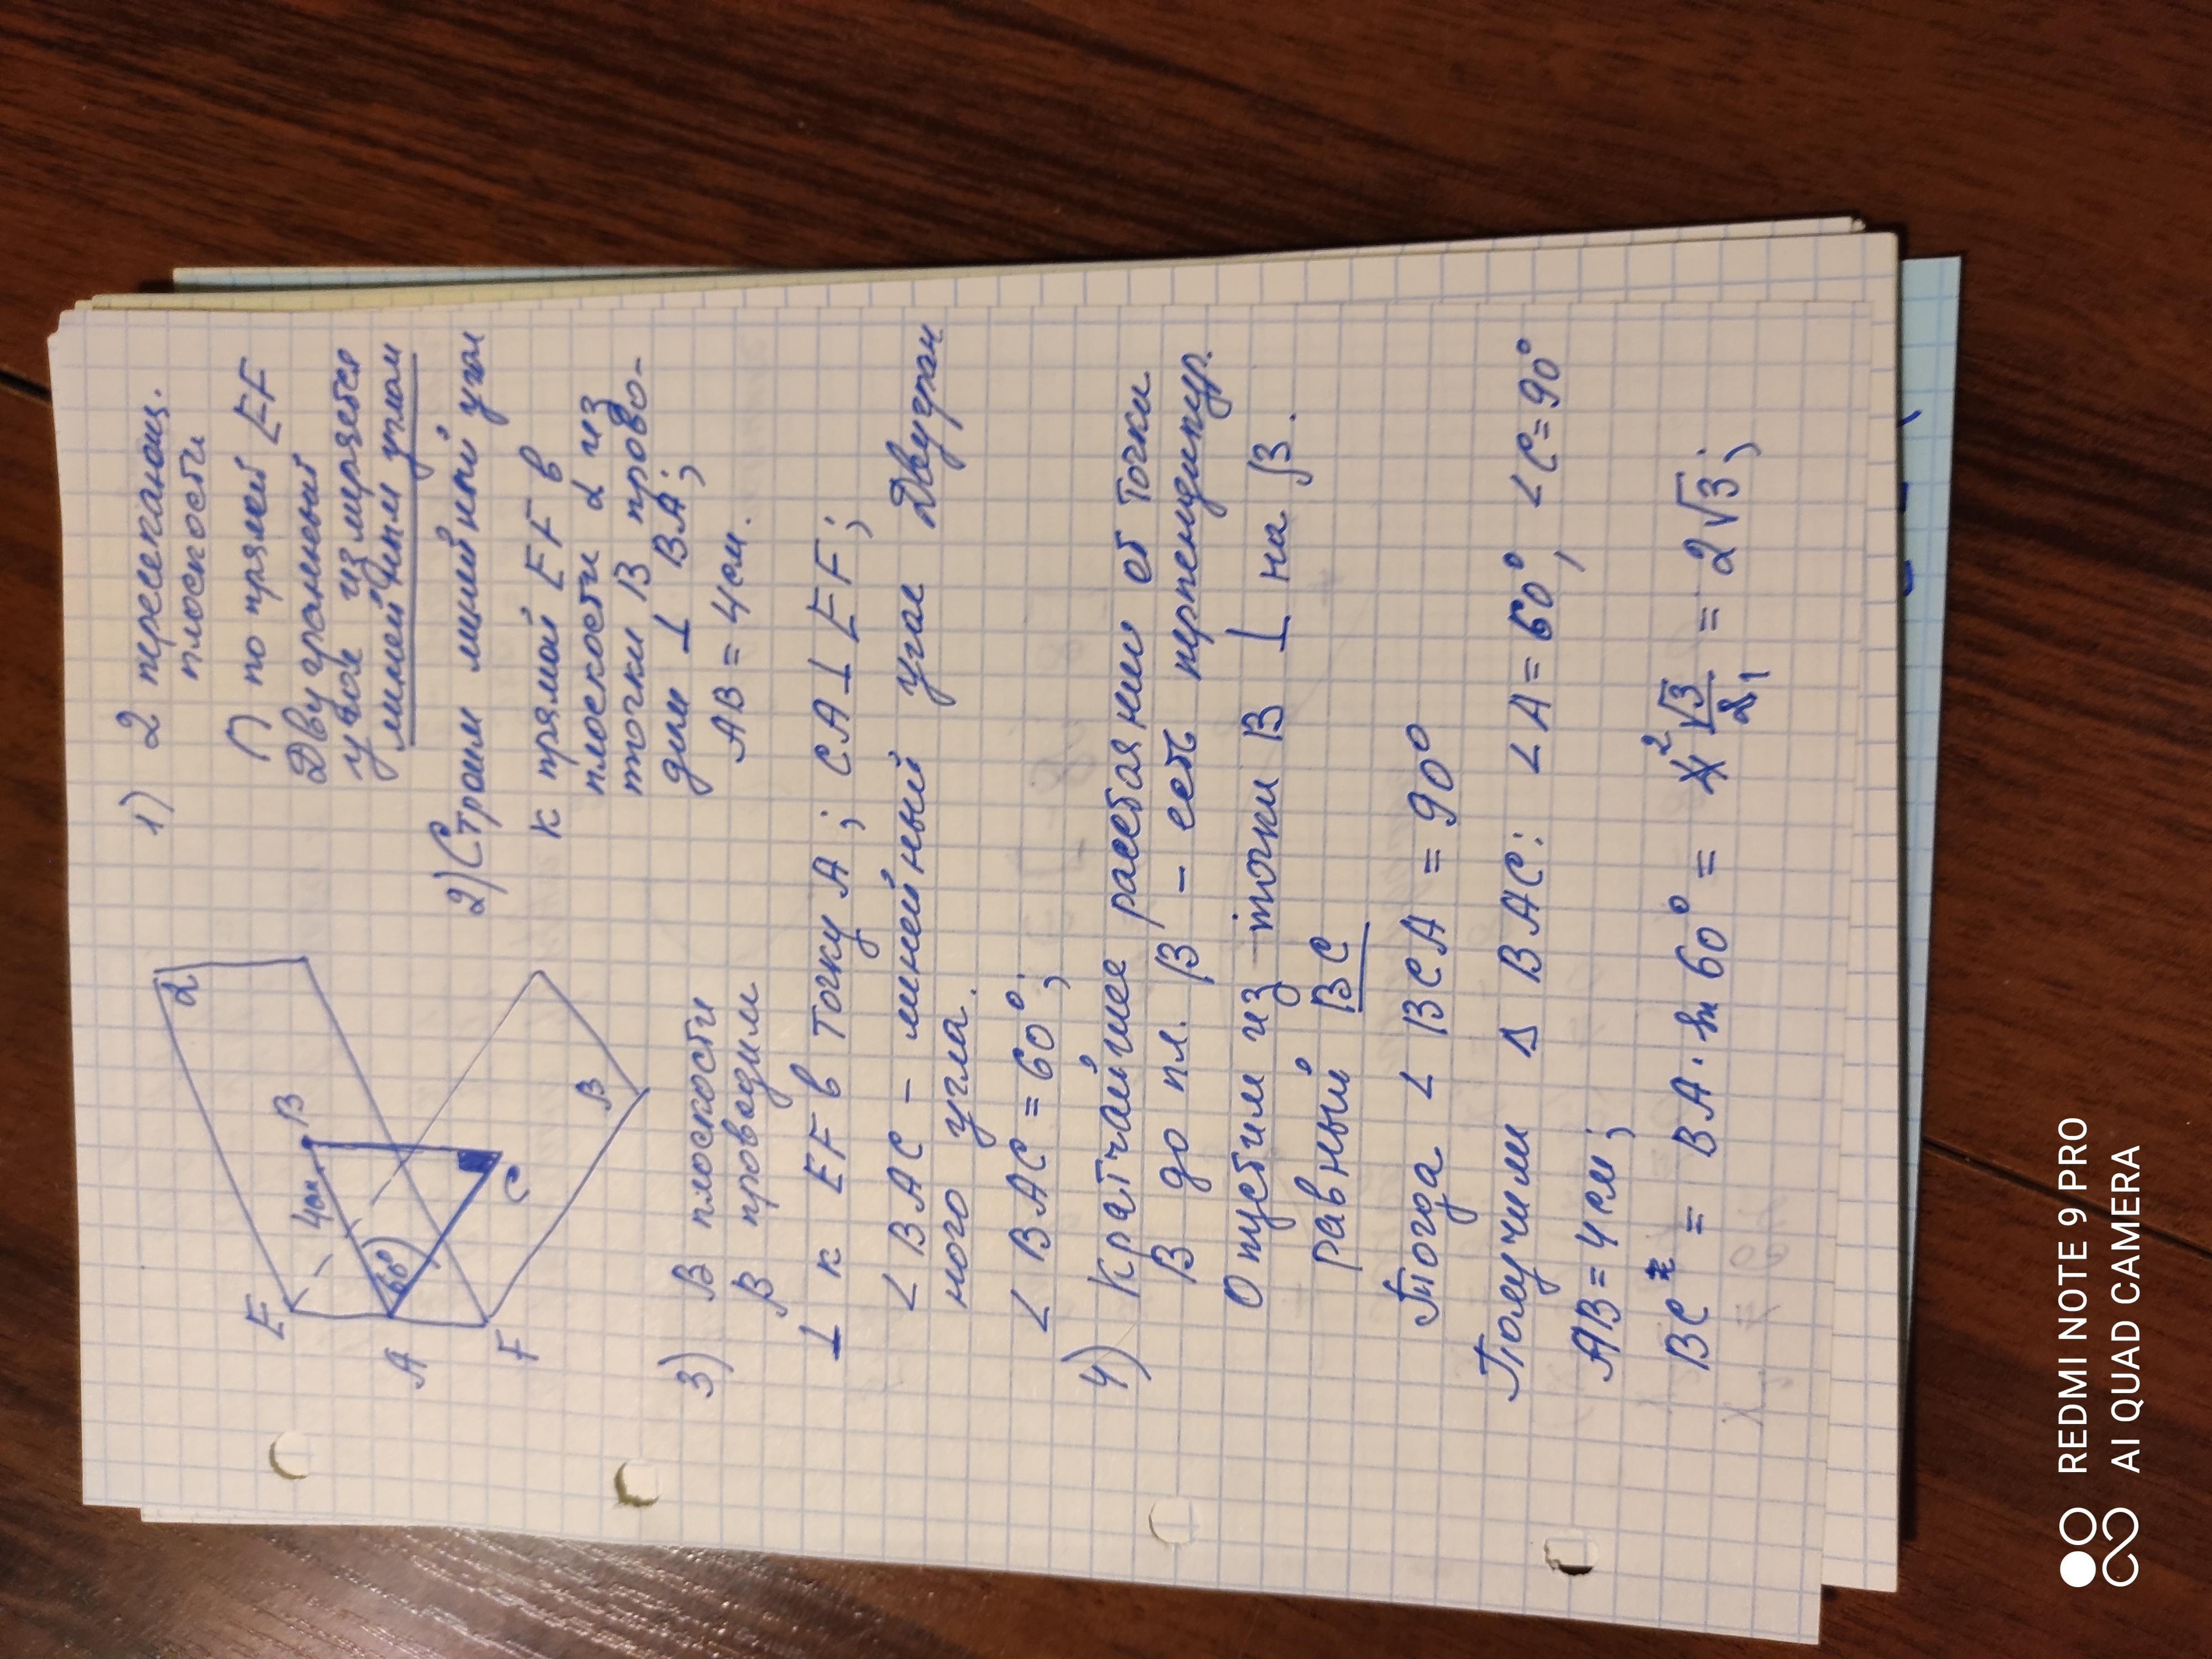 1) 2 пересекающ.
плоскости
∩ по прямой EF
Двугранный
угол измеряется
линейным углом
2) Строим линейный угол
к прямой EF в
плоскости α из
точки B прово-
дим ⊥ BA;
AB = 4см.
E
α
4см
B
60°
A
C
F
β
3) В плоскости
β проводим
⊥ к EF в точку A; CA ⊥ EF;
∠ BAC – линейный угол двугран
ного угла.
∠ BAC = 60°;
4) Кратчайшее расстояние от точки
B до пл. β – есть перпендикуляр.
Опустим из точки B ⊥ на β.
равный BC
Тогда ∠ BCA = 90°
Получим Δ BAC: ∠A = 60°, ∠C = 90°
AB = 4см;
BC = BA · sin 60° = 4 2 √3/2 1 = 2√3;
REDMI NOTE 9 PRO
AI QUAD CAMERA